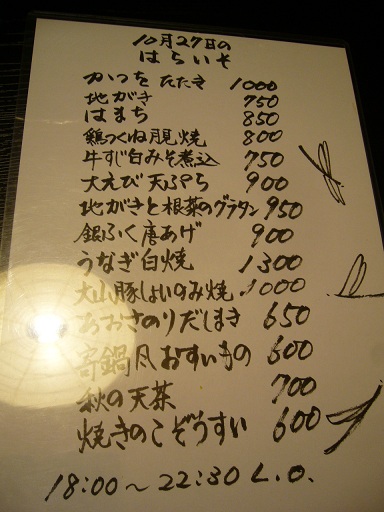 10月27日の
はらいそ
かつをたたき 1000
地がき 750
はまち 850
鶏つくね月見焼 800
牛すじ白みそ煮込 750
大えび天ぷら 900
地がきと根菜のグラタン 950
銀ふく唐あげ 900
うなぎ白焼 1300
大山豚しょいのみ焼 1000
あおさのりだしまき 650
寄鍋風おすいもの 600
秋の天茶 700
焼きのこぞうすい 600
18:00～22:30 L.O.